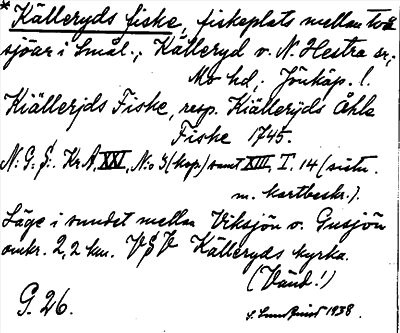 * Källeryds fiske, fiskeplats mellan två
sjöar i Smål.; Källeryd o. N. Hestra sn;
Mo hd; Jönköp. l.
Kiällerjds Fiske, resp. Kiällerÿds Åhla
Fiske 1745.
N: G: F: Kr A, XXI, N:o 3 (kop) samt XIII, I. 14 (sistn.
m. kartbeskr.).
Läge i sundet mellan Viksjön o. Gusjön
omkr. 2,2 km. VSV Källeryds kyrka.
(Vänd!)
G. 26. 1938.